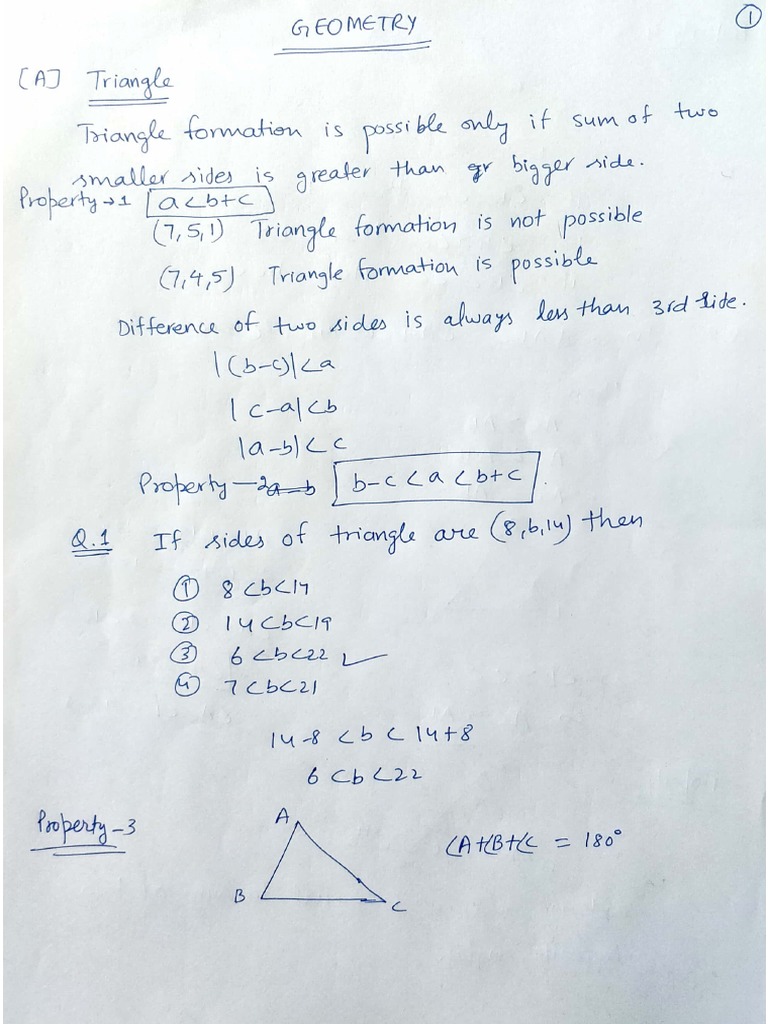 GEOMETRY
1
[A] Triangle
Triangle formation is possible only if sum of two
smaller sides is greater than bigger side.
Property → 1 a<b+c
(7,5,1) Triangle formation is not possible
(7,4,5) Triangle formation is possible
Difference of two sides is always less than 3rd side.
|(b-c)|<a
|c-a|<b
|a-b|<c
Property - 2 b-c<a<b+c
Q.1 If sides of triangle are (8,b,14) then
① 8<b<14
② 14<b<19
③ 6<b<22 ✓
④ 7<b<21
14-8<b<14+8
6<b<22
Property-3
A
∠A+∠B+∠C = 180°
B
C